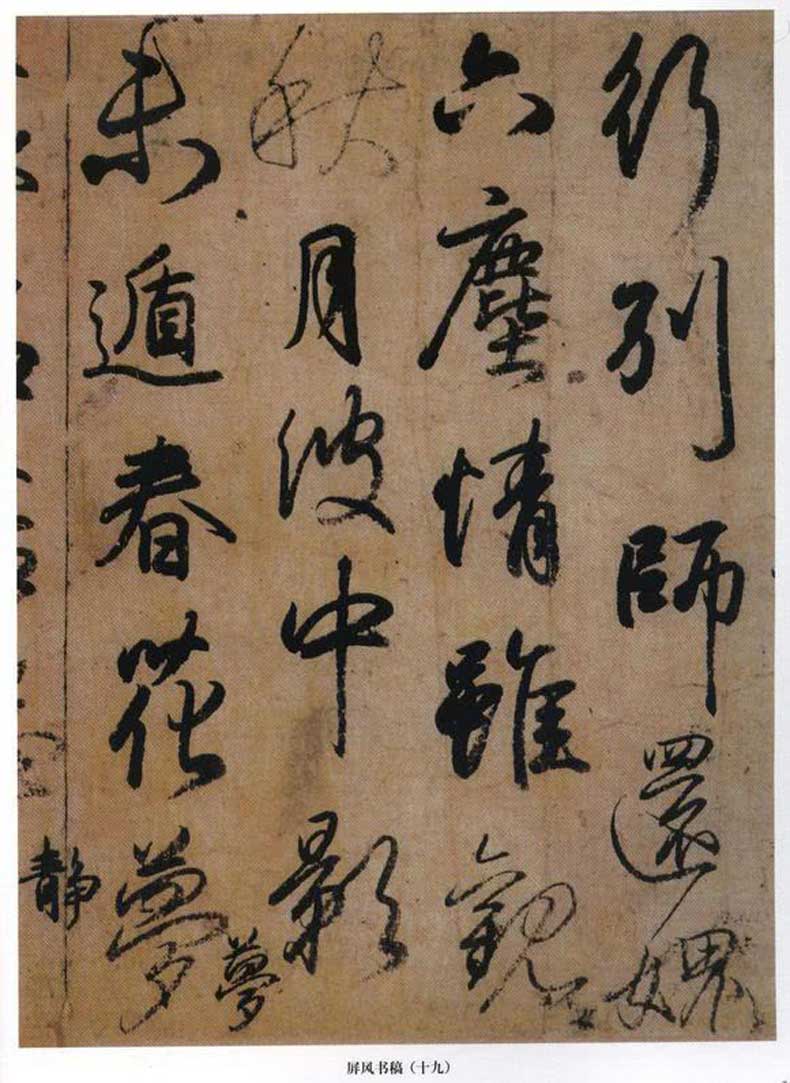 行列師還媿
六塵情雖觀
秋月波中影
未遁春花夢
夢
静
屏风书稿（十九）